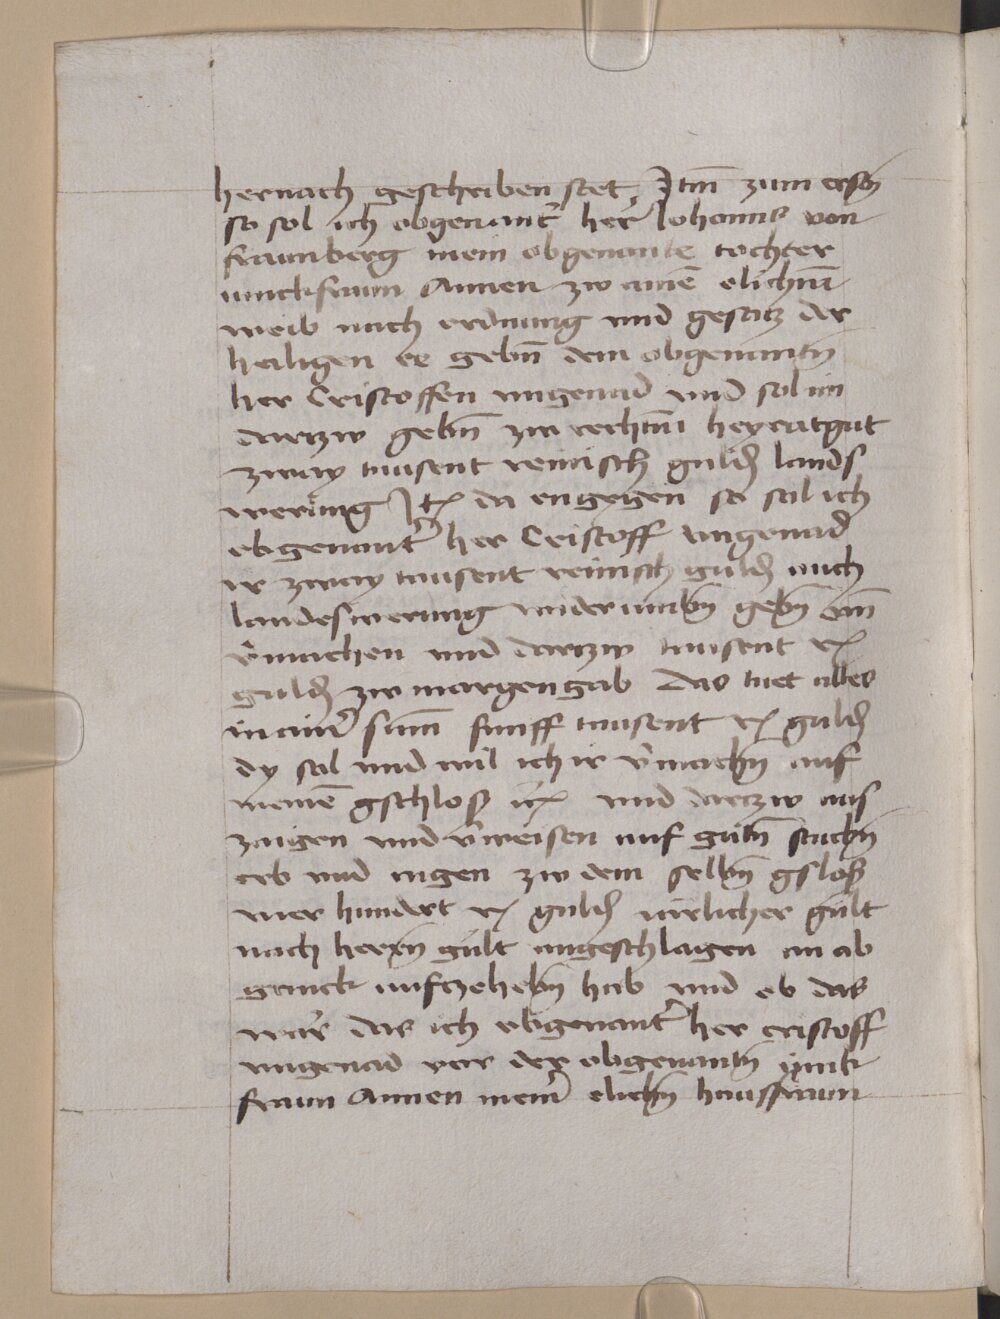 hernach geschriben stet, Itm̄ zum erstn̄
so sol ich obgenant' her Johanns von
fraunberg mein obgenante tochter
iunckfraun Annen zw ainē elichn̄
weib nach ordnung vnd gesatz der
heiligen ee gebn̄ dem obgenantn̄
her Cristoffen vngenad vnd sol im
darzw gebn̄ zw rechtm̄ heyratgut
zway tausent reinisch guldn̄ lands
werung Itͫ da engegen so sol ich
obgenant' her Cristoff vngenad
ir zway tausent reinisch guldn̄ auch
landeswerung widerumbn̄ gebn̄ vn̄
v'machen vnd darzw tausent rͫ
guldn̄ zw margengab das tuet alles
in ain' sum̄ funff tausent rͫ guldn̄
dy sol vnd wil ich ir v'machn̄ auf
meinē gschlosß vnd darzw aus
zaigen vnd v'weisen auf gutn̄ stuckn̄
erb vnd aigen zw dem selbn̄ gslosß
vier hundert rͫ guldn̄ iärlicher gült
nach herrn̄ gült angeschlagen an ab
ganck aufczehebn̄ hab vnd ob das
wär das ich obgenant' her cristoff
vngenad vor der obgenantn̄ junk
fraun Annen mein' elichn̄ hausfraun